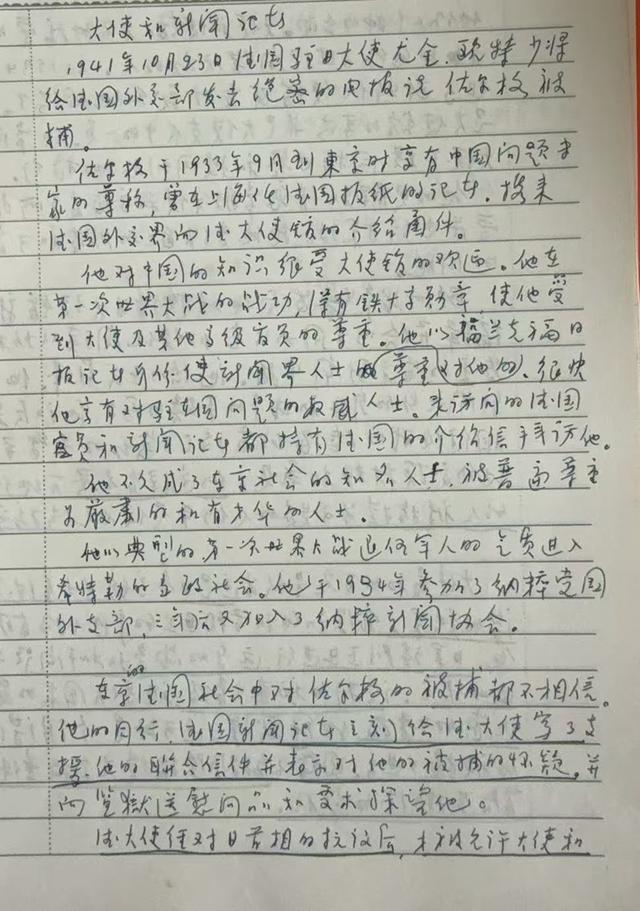 大使和新闻记者
1941年10月23日德国驻日大使尤金·欧特少将
给德国外交部发去绝密的电报说佐尔格被
捕。
佐尔格于1933年9月到東京时享有中国问题专
家的尊称，曾在上海任德国报纸的记者，携来
德国外交界向德大使馆的介绍函件。
他对中国的知识很受大使馆的欢迎。他在
第一次世界大战的战功，保有鉄十字勋章，使他受
到大使及其他高级官员的尊重。他以福兰克福日
报记者身份使新闻界人士的尊重(对他的)，很快
他享有对驻在国问题的权威人士。来访问的德国
官员和新闻记者都持有德国的介绍信来拜访他。
他不久成了东京社会的知名人士，被普遍尊重
为严肃的和有才华的人士。
他以典型的第一次世界大战退伍军人的气质进入
希特勒的 社会。他于1934年参加了纳粹党国
外支部，三年后又加入了纳粹新闻协会。
东京的德国社会中对佐尔格的被捕都不相信。
他的同行，德国新闻记者立刻给德大使写了支
援他的联合信件并表示对他的被捕的怀疑，并
向监獄送慰问品和要求探望他。
德大使经对日首相的抗议后，才被允许大使和